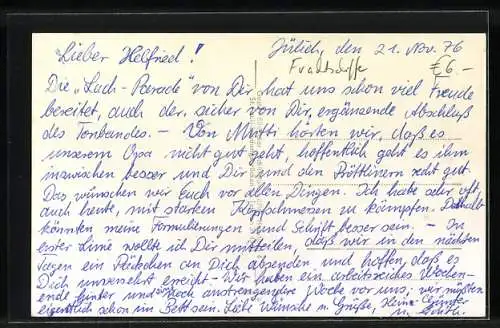 Lieber Helfried!
Jülich, den 21. Nov. 76
Frachtschiffe
€ 6.-
Die „Lach-Parade" von Dir hat uns schon viel Freude
bereitet, auch der, sicher von Dir, ergänzende Abschluß
des Tonbandes. – Von Mutti hörten wir, daß es
unserem Opa nicht gut geht, hoffentlich geht es ihm
inzwischen besser und Dir und den recht gut.
Das wünschen wir Euch vor allen Dingen. Ich habe sehr oft,
auch heute, mit starken Kopfschmerzen zu kämpfen. Deshalb
könnten meine Formulierungen und Schrift besser sein. – In
erster Linie wollte ich Dir mitteilen, daß wir in den nächsten
Tagen ein Päckchen an Dich absenden und hoffen, daß es
Dich unversehrt erreicht. – Wir haben ein arbeitsreiches Wochen-
ende hinter und eine anstrengendere Woche vor uns; wir müßten
eigentlich schon im Bett sein. Liebe Wünsche u. Grüße,
u.